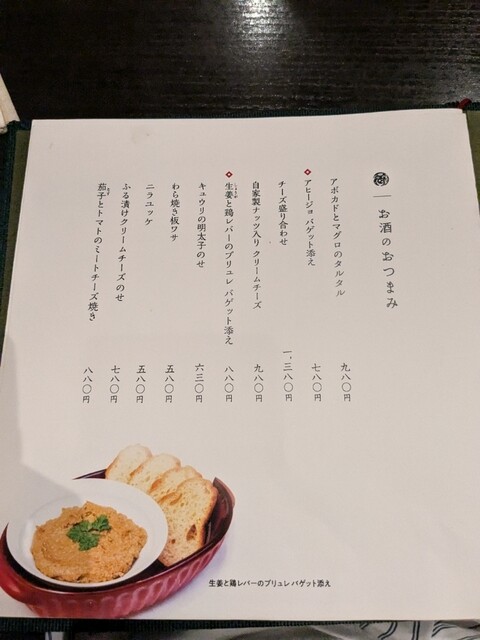 お酒のおつまみ
アボカドとマグロのタルタル 九八〇円
アヒージョ バゲット添え 七八〇円
チーズ盛り合わせ 一、三八〇円
自家製ナッツ入り クリームチーズ 九八〇円
生姜と鶏レバーのブリュレ バゲット添え 八八〇円
キュウリの明太子のせ 六三〇円
わら焼き板ワサ 五八〇円
ニラユッケ 五八〇円
ふる漬けクリームチーズのせ 七八〇円
茄子とトマトのミートチーズ焼き 八八〇円
生姜と鶏レバーのブリュレ バゲット添え